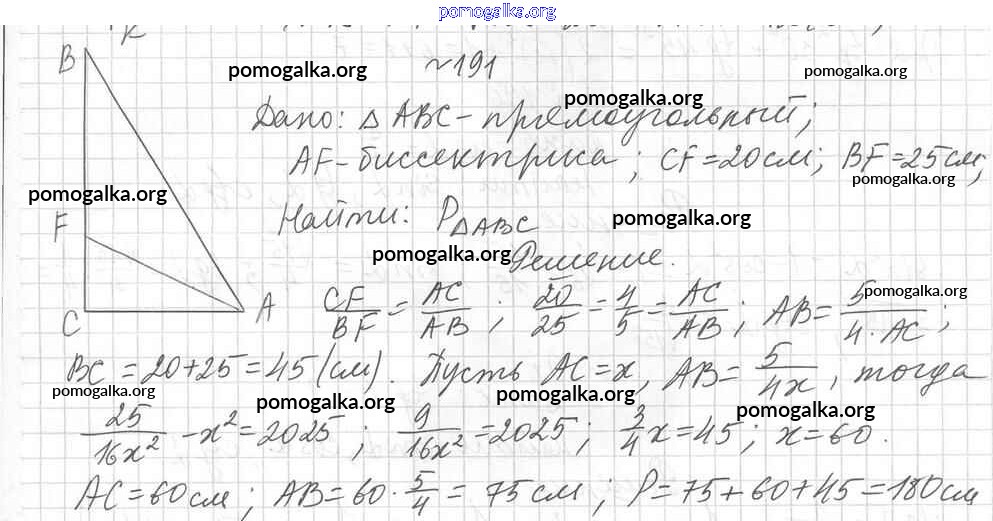 pomogalka.org
K
B
~191
pomogalka.org
pomogalka.org
pomogalka.org
Дано: △ ABC - прямоугольный;
AF - биссектриса; CF = 20 см; BF = 25 см;
pomogalka.org
pomogalka.org
F
Найти: P△ABC
pomogalka.org
pomogalka.org
Решение.
C
A
CF/BF = AC/AB; 20/25 = 4/5 = AC/AB; AB = 5/4·AC;
pomogalka.org
BC = 20 + 25 = 45 (см). Пусть AC = x, AB = 5/4x, тогда
pomogalka.org
pomogalka.org
pomogalka.org
25/16x² - x² = 2025; 9/16x² = 2025; 3/4 x = 45; x = 60.
AC = 60 см; AB = 60 · 5/4 = 75 см; P = 75 + 60 + 45 = 180 см